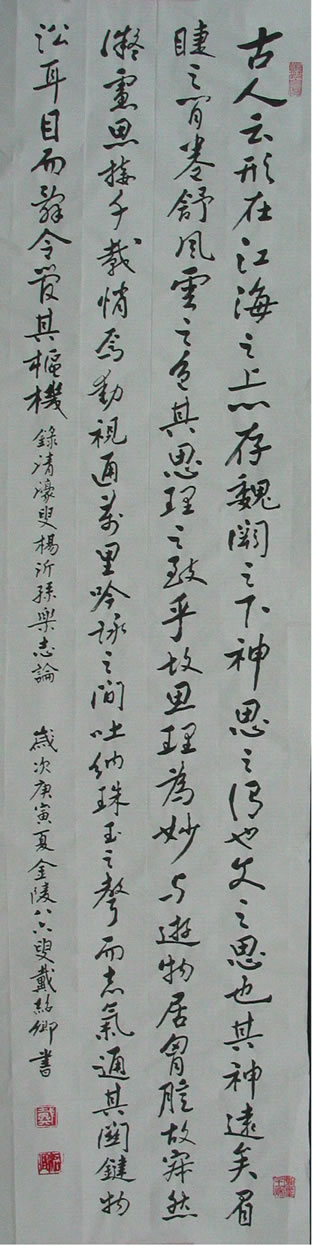 古人云形在江海之上心存魏闕之下神思之謂也文之思也其神遠矣眉
睫之间卷舒風雲之色其思理之致乎故思理為妙与遊物居胷臆故寂然
凝慮思接千載悄焉動視通萬里吟詠之间吐納珠玉之聲而志氣通其關鍵物
沿耳目而辭令管其樞機 錄清濠叟楊沂孫樂志論 歲次庚寅夏金陵八六叟戴紹卿書